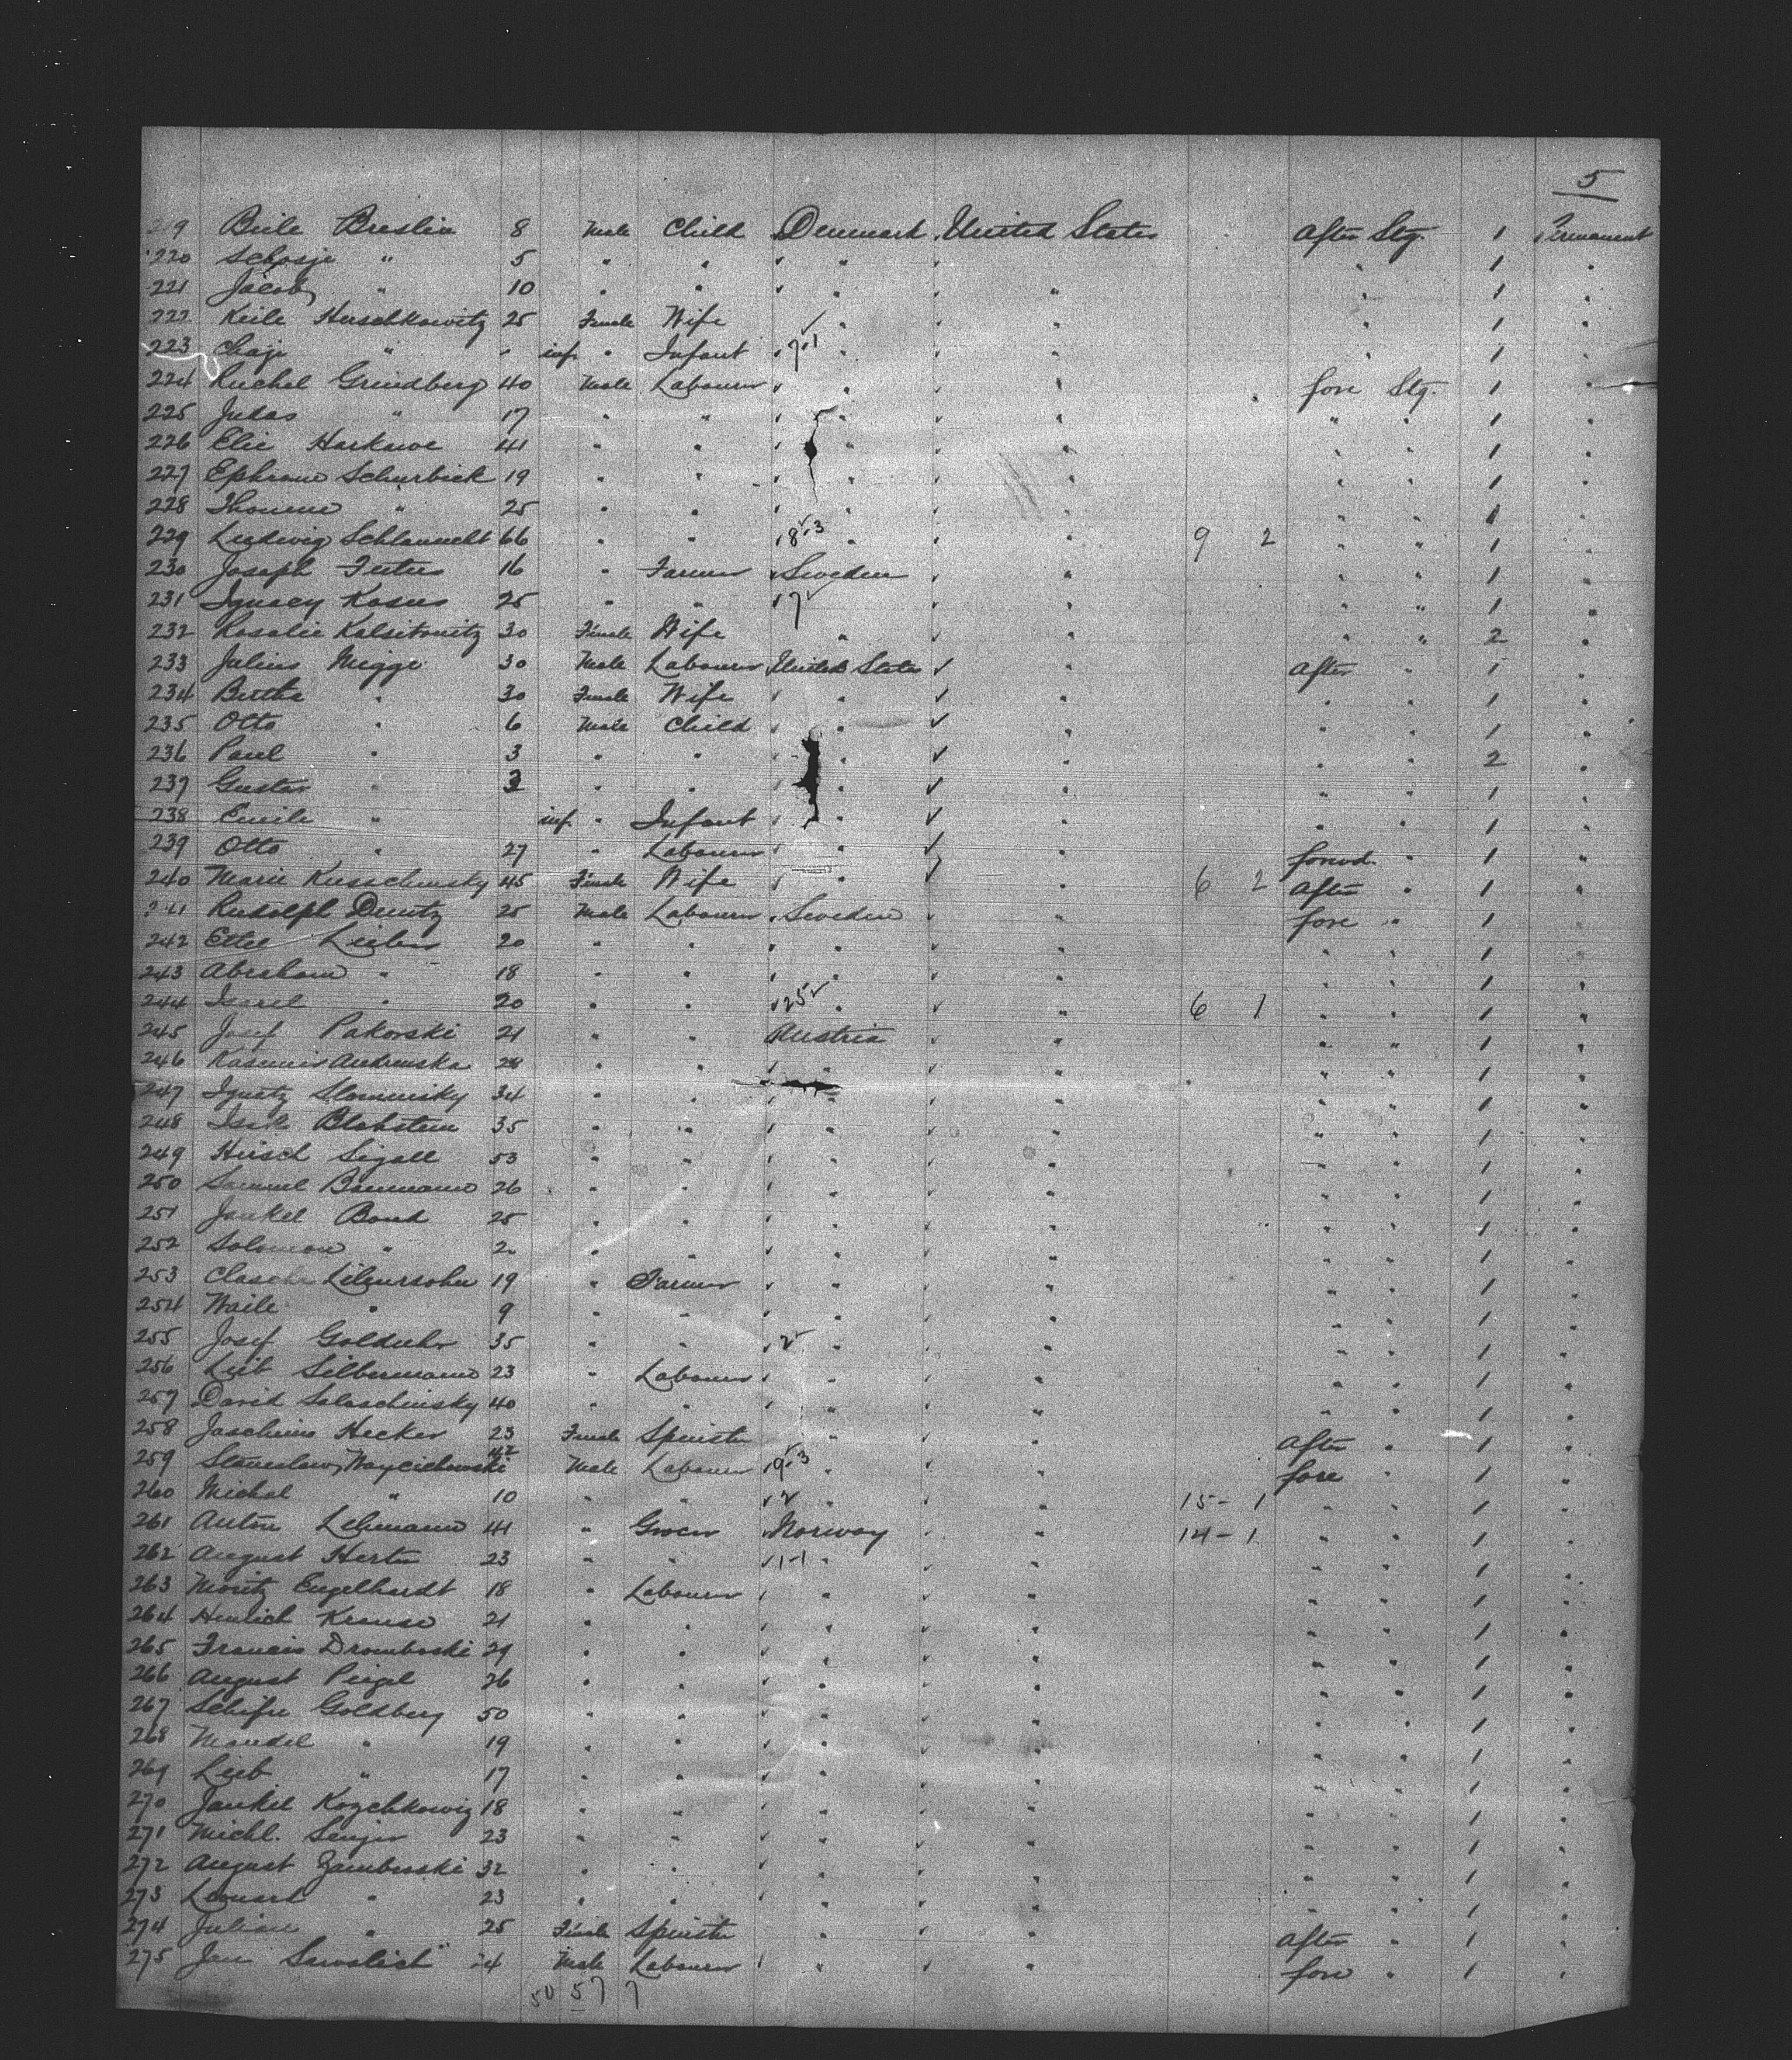 5
219 Beile Breslin 8 Male Child Denmark United States After Stg. 1 Permanent
220 Schosje " 5 " " " " " 1 "
221 Jacob " 10 " " " " " 1 "
222 Keile Herschkowitz 25 Female Wife " " " 1 "
223 Chaje " inf. " Infant 7-1 " " " 1 "
224 Ruchel Grindberg 40 Male Labourer " " fore Stg. 1 "
225 Judas " 17 " " " " " " 1 "
226 Elie Harkawe 41 " " " " " " 1 "
227 Ephraim Schurbick 19 " " " " " " 1 "
228 " 25 " " " " " " 1 "
229 Ludwig 66 " " 18-3 " " 9 2 " " 1 "
230 Joseph 16 " Farmer Sweden " " " 1 "
231 Ignacy Kosus 25 " " 17 " " " 1 "
232 Rosalie Kalsitowitz 30 Female Wife " " " " 2 "
233 Julius Migge 30 Male Labourer United States " After " 1 "
234 Bertha " 30 Female Wife " " " " " 1 "
235 Otto " 6 Male Child " " " " " 1 "
236 Paul " 3 " " " " " " 2 "
237 Gustav " 3 " " " " " " 1 "
238 Emile " inf. " Infant " " " " 1 "
239 Otto " 27 " Labourer " " forwd. " 1 "
240 Marie Kusschinsky 45 Female Wife " " 6 2 After " 1 "
241 Rudolph Deutz 25 Male Labourer Sweden " fore " 1 "
242 Ettel 20 " " " " " " 1 "
243 Abraham " 18 " " " " " " 1 "
244 Israel " 20 " " 25 " " 6 1 " " 1 "
245 Josef Pakorski 21 " " Austria " " " 1 "
246 Kasimir 28 " " " " " " 1 "
247 Ignatz Slominsky 34 " " " " " " 1 "
248 Blobstein 35 " " " " " " 1 "
249 Hirsch Sigall 53 " " " " " " 1 "
250 Samuel Baumann 26 " " " " " " 1 "
251 Jankel Band 25 " " " " " " 1 "
252 Solomon " 2 " " " " " " 1 "
253 19 " Farmer " " " " 1 "
254 Waile " 9 " " " " " " 1 "
255 Josef 35 " " 2 " " " " 1 "
256 Leib Silbermann 23 " Labourer " " " " 1 "
257 David Salaschinsky 40 " " " " " " 1 "
258 Hecker 23 Female Spinster " " After " 1 "
259 Stanislaw Woyciehowski 42 Male Labourer 19-3 " " fore " 1 "
260 Michal " 10 " " 2 " " 15 - 1 " " 1 "
261 Anton Lehmann 41 " Grocer Norway " 14 - 1 " " 1 "
262 August Herter 23 " " 1-1 " " " " 1 "
263 Moritz Engelhardt 18 " Labourer " " " " 1 "
264 Heinrich Krause 21 " " " " " " 1 "
265 Francis Dromboski 29 " " " " " " 1 "
266 August Peigel 26 " " " " " " 1 "
267 Schifre Goldberg 50 " " " " " " 1 "
268 Mandel " 19 " " " " " " 1 "
269 Leib " 17 " " " " " " 1 "
270 Jankel Kozchkowiz 18 " " " " " " 1 "
271 Michl. 23 " " " " " " 1 "
272 August Zamborski 32 " " " " " " 1 "
273 Leonard " 23 " " " " " " 1 "
274 Julian " 25 Female Spinster " " After " 1 "
275 Jan Sawalish Male Labourer " " fore " 1 "
50 57 7